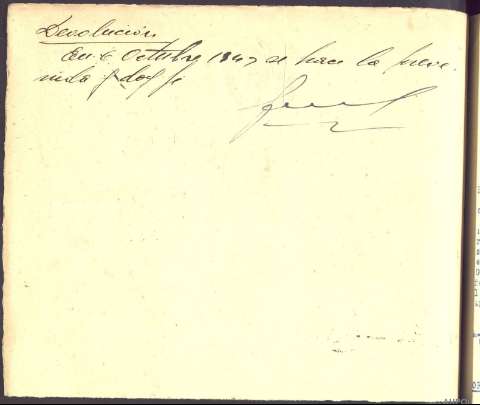 Devolución
En 6 Octubre 1947 se hace la preve-
nida y doy fe